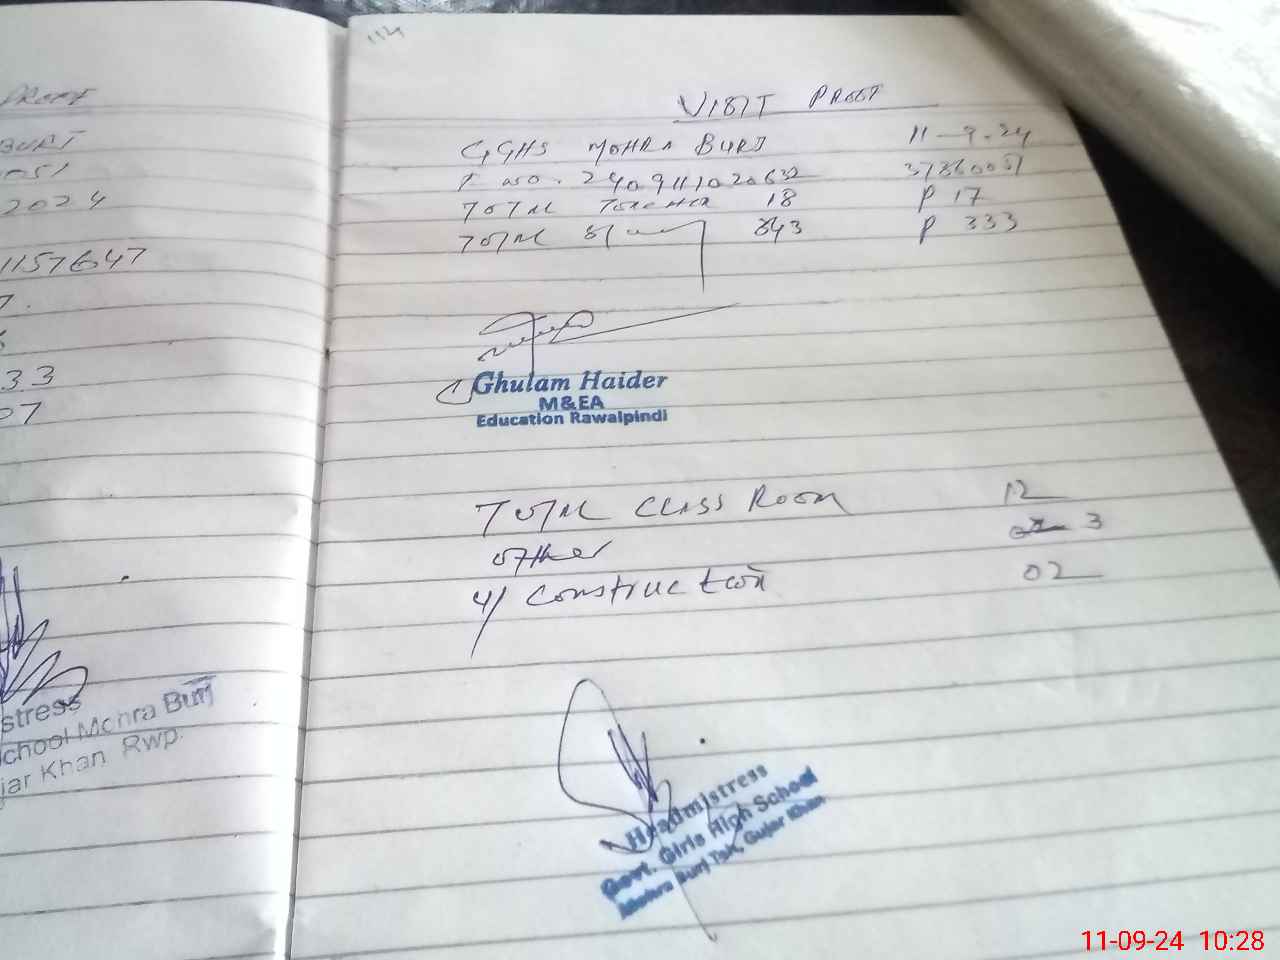 PROOF
BURJ
051
2024
1157647
7.
33
07
stress
chool Mohra Burj
jar Khan Rwp.
114
VISIT PROOF
GGHS MOHRA BURJ 11-9-24
NO. 240911020632 37360051
TOTAL TEACHER 18 P 17
TOTAL 343 P 333
Ghulam Haider
M&EA
Education Rawalpindi
TOTAL CLASS ROOM 12
other 3
U/ construction 02
Headmistress
Govt. Girls High School
Mohra Burj Teh. Gujar Khan
11-09-24 10:28